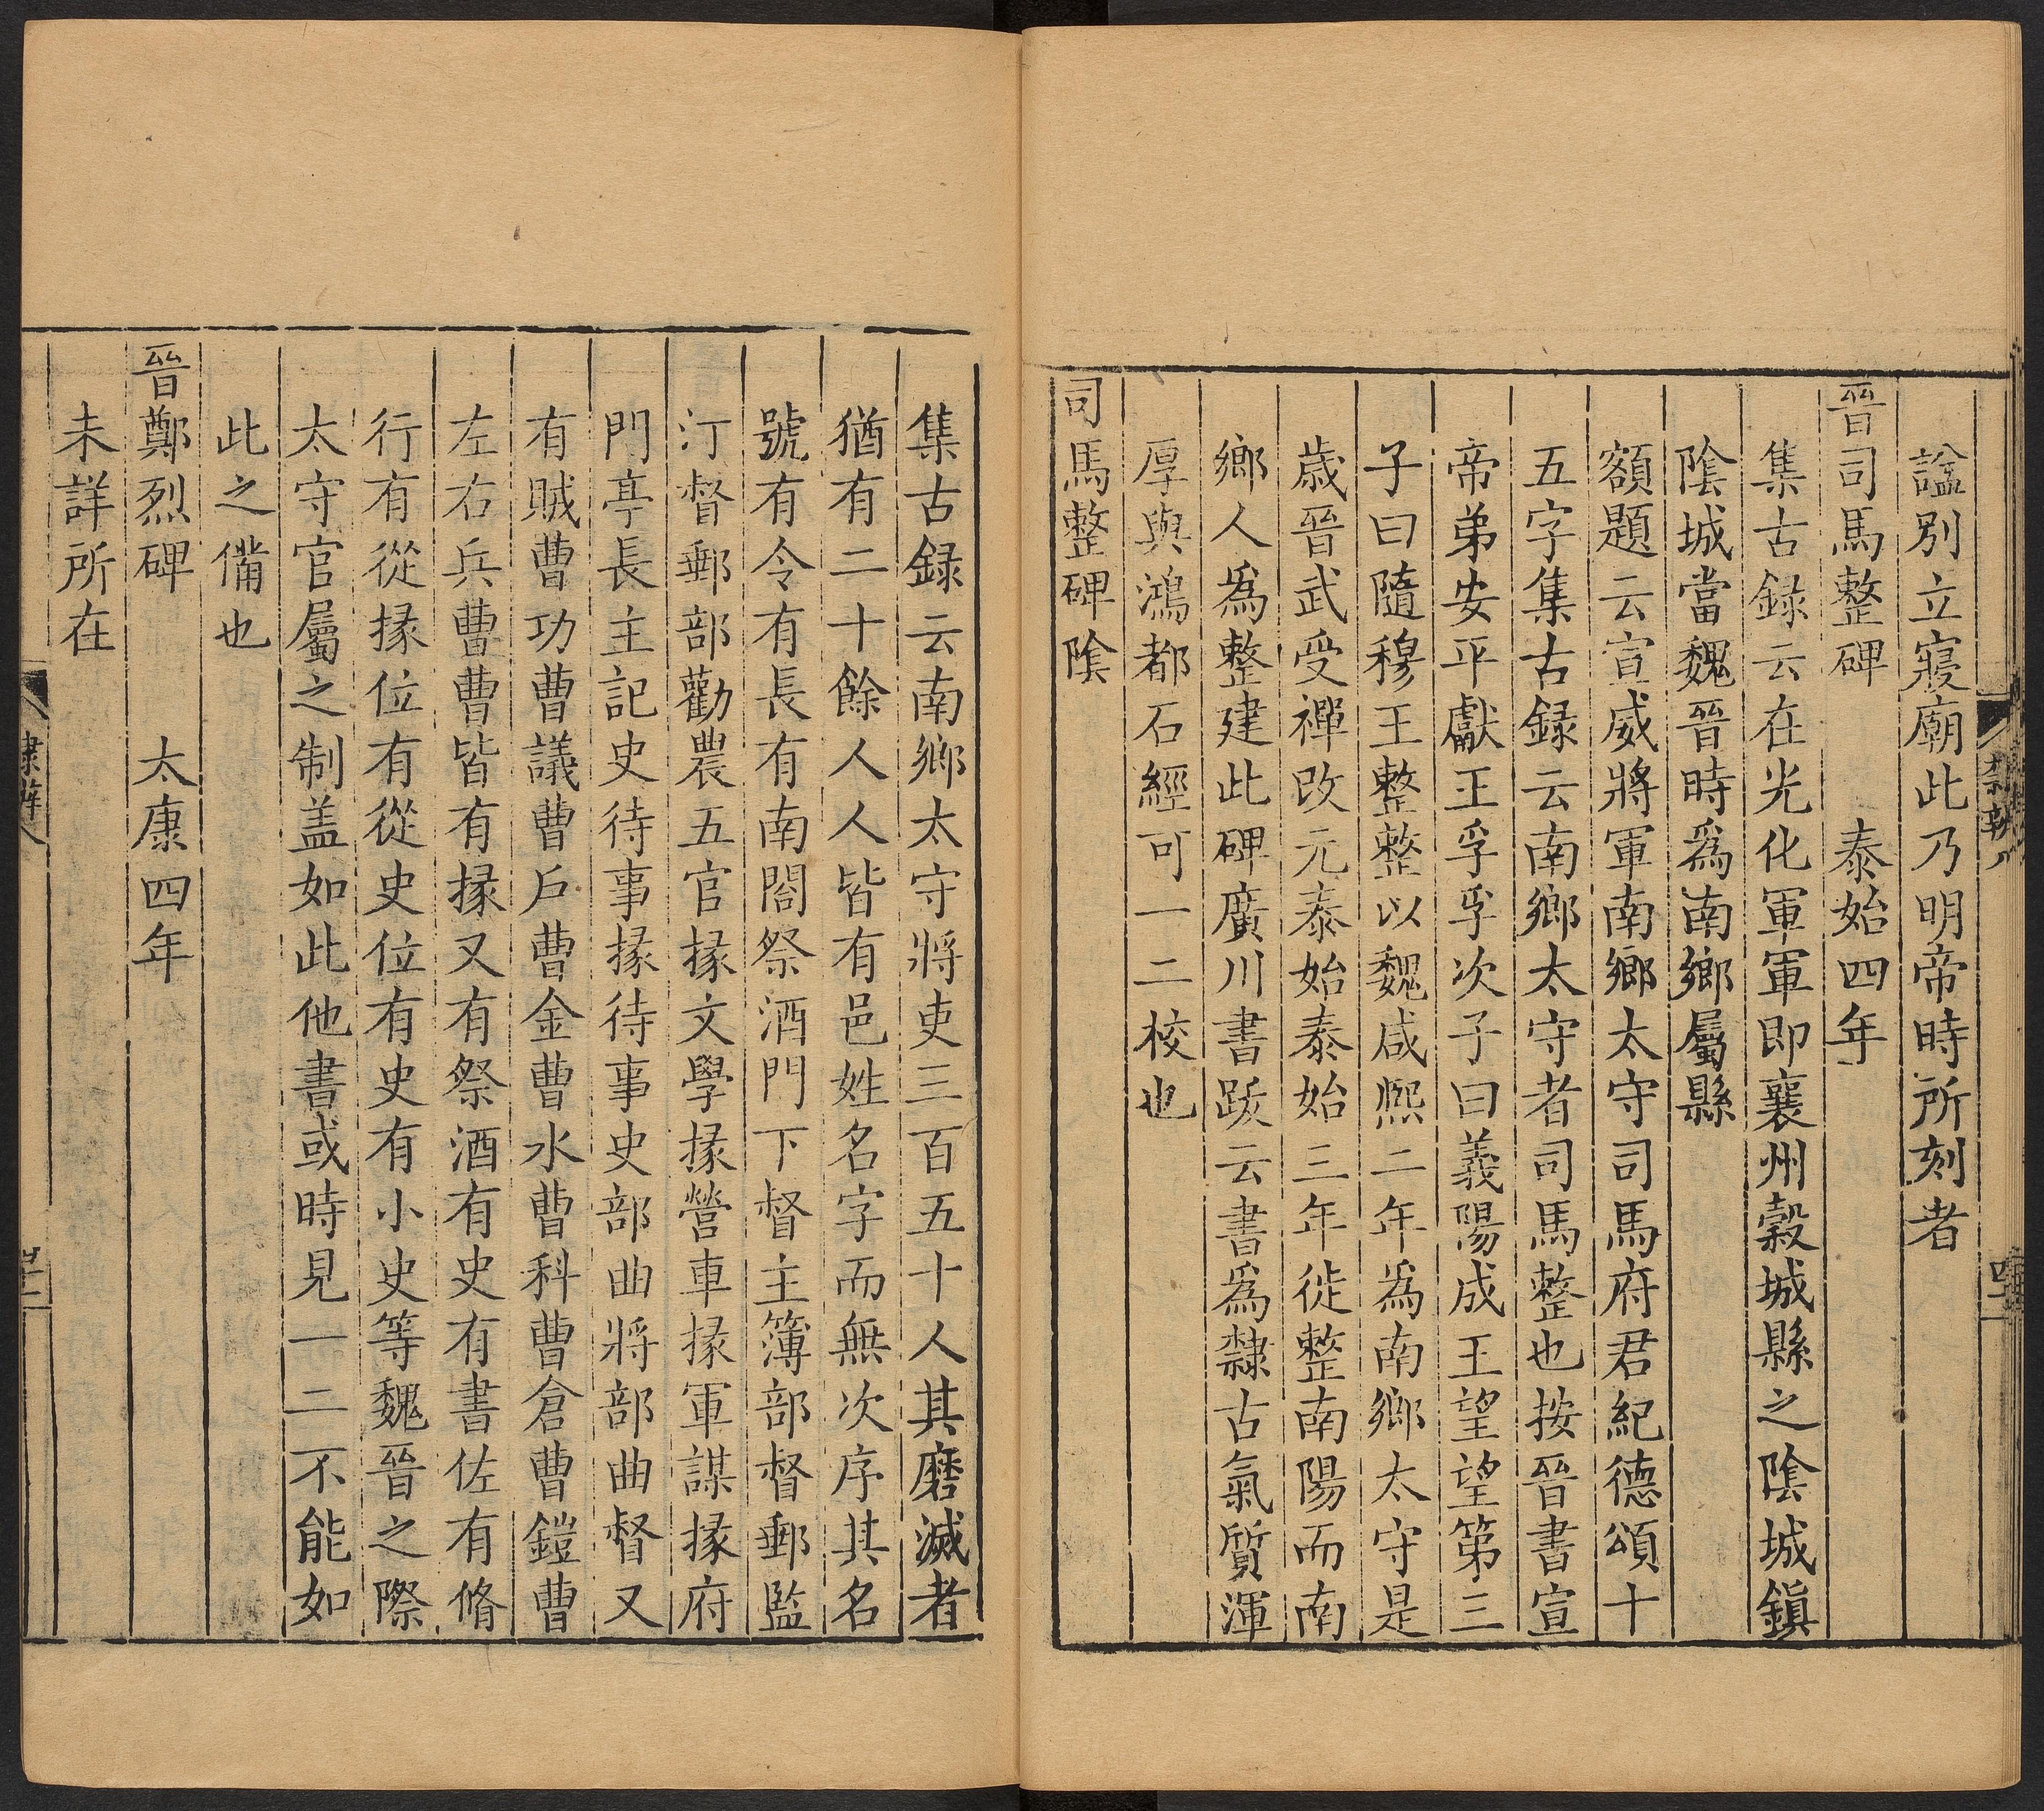 謚別立寢廟此乃明帝時所刻者
晉司馬整碑　泰始四年
集古録云在光化軍軍即襄州穀城縣之陰城鎮
陰城當魏晉時爲南鄉屬縣
額題云宣威將軍南鄉太守司馬府君紀德頌十
五字集古録云南鄉太守者司馬整也按晉書宣
帝弟安平獻王孚孚次子曰義陽成王望望第三
子曰隨穆王整整以魏咸熙二年爲南鄉太守是
歲晉武受禪改元泰始泰始三年徙整南陽而南
鄉人爲整建此碑廣川書跋云書爲隸古氣質渾
厚與鴻都石經可一二校也
司馬整碑陰
集古録云南鄉太守將吏三百五十人其磨滅者
猶有二十餘人人皆有邑姓名字而無次序其名
號有令有長有南閤祭酒門下督主簿部督郵監
汀督郵部勸農五官掾文學掾營車掾軍謀掾府
門亭長主記史待事掾待事史部曲將部曲督又
有賊曹功曹議曹戶曹金曹水曹科曹倉曹鎧曹
左右兵曹曹皆有掾又有祭酒有史有書佐有脩
行有從掾位有從史位有史有小史等魏晉之際
太守官屬之制盖如此他書或時見一二不能如
此之備也
晉鄭烈碑　太康四年
未詳所在